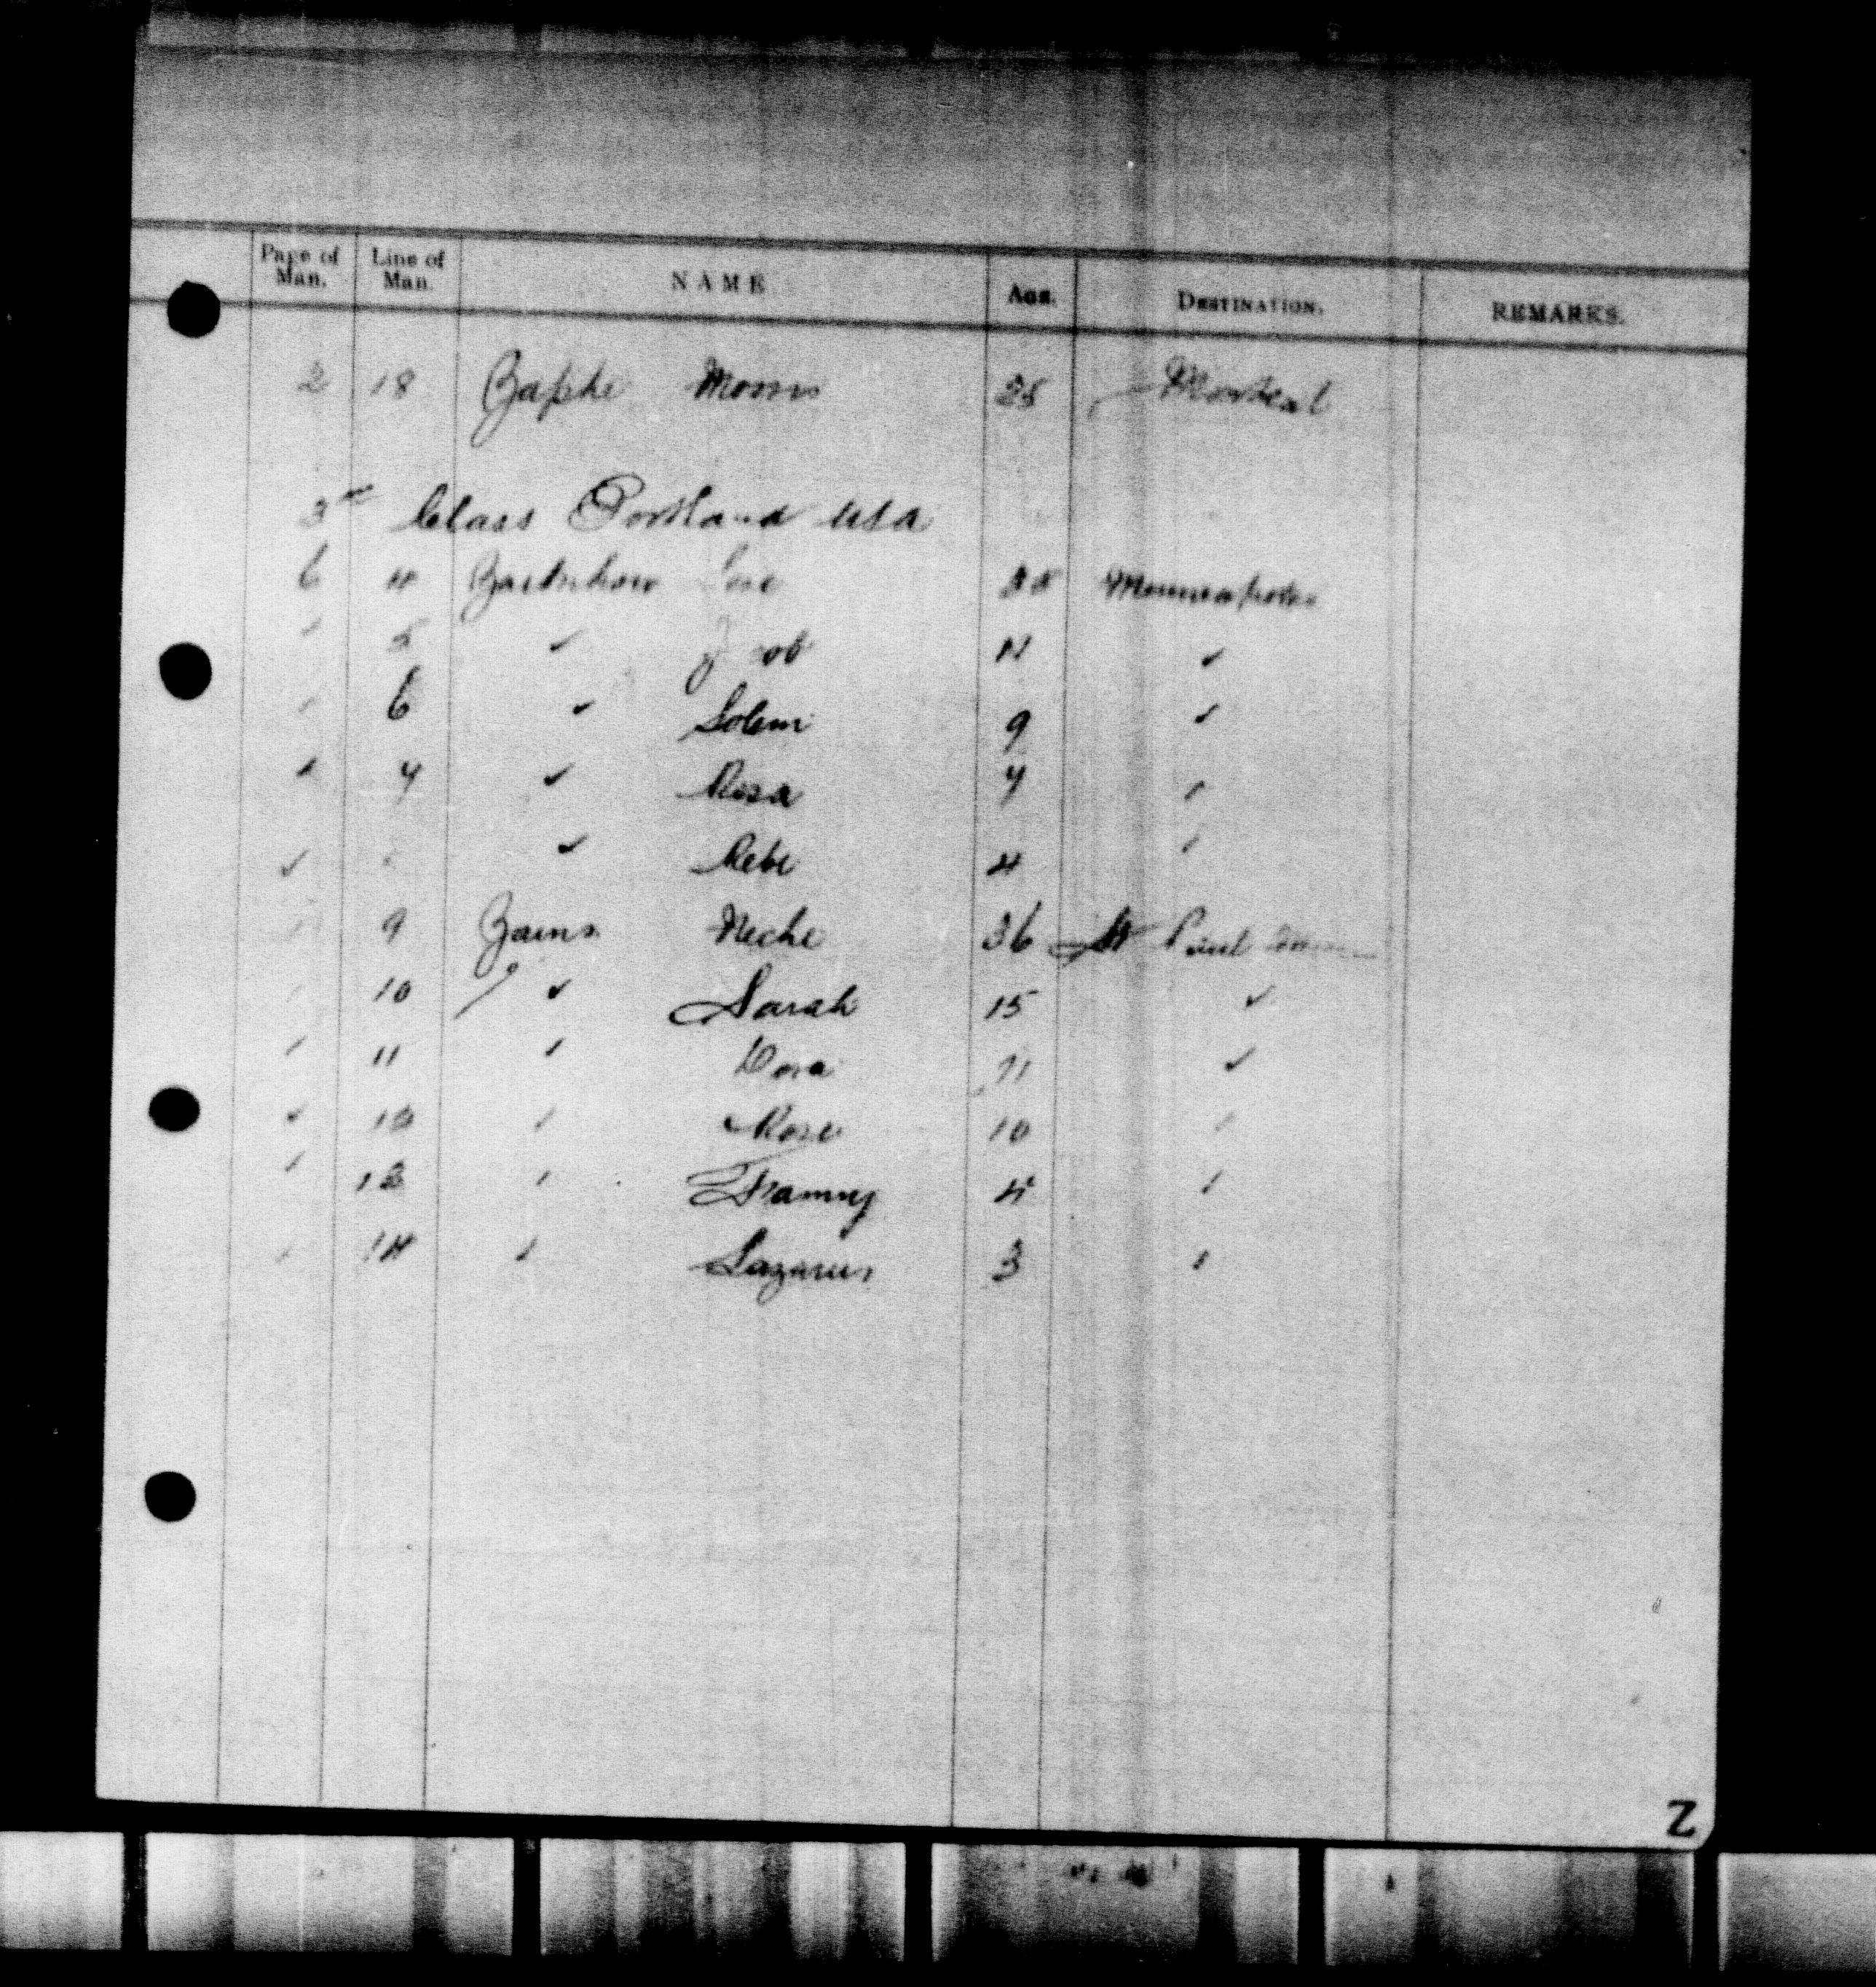 Page of Man. Line of Man. NAME Age. DESTINATION. REMARKS.
2 18 Zapke Morris 25 Montreal
3rd Class Portland USA
6 4 Minneapolis
" 5 " 11 "
" 6 " Solem 9 "
" 7 " Rosa 7 "
" " Rebe 4 "
" 9 Zains Neche 36 St Paul
" 10 " Sarah 15 "
" 11 " Dora 11 "
" 12 " Rose 10 "
" 13 " Fanny 4 "
" 14 " Lazarus 3 "
Z